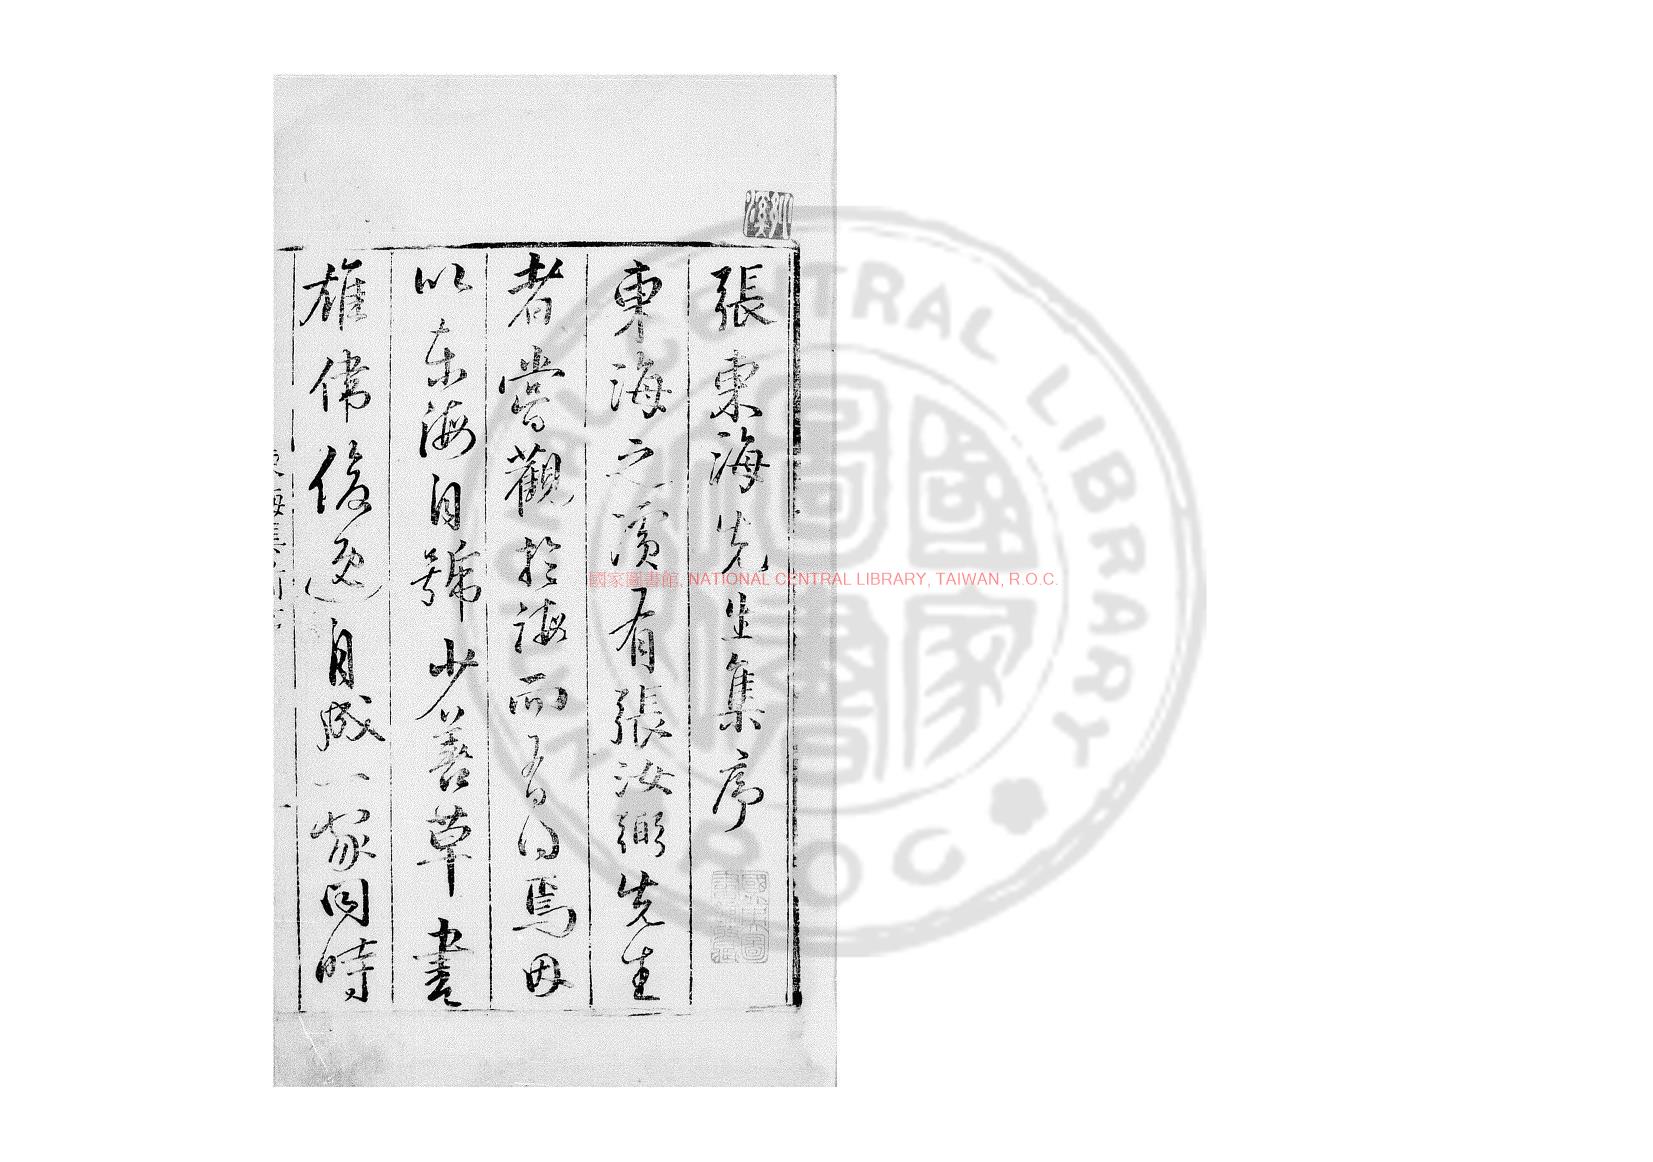 張東海先生集序
東海之濱有張汝弼先生
者嘗觀於海而有得焉因
以东海自號少善草書
雄偉俊逸自成一家同時
國家圖書館, NATIONAL CENTRAL LIBRARY, TAIWAN, R.O.C.
CENTRAL LIBRARY
ROC
國家圖書